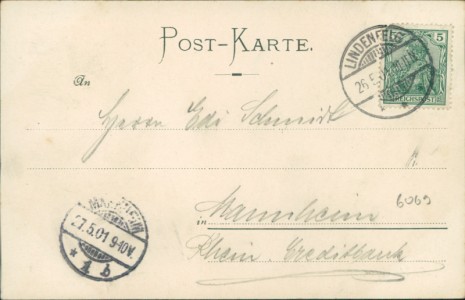 POST-KARTE.
5
REICHSPOST
LINDENFELS
26.5.01
An
Herrn Edi Schmidt
6069
in Mannheim
Rhein. Creditbank
MANNHEIM
27.5.01 9-10V.
* 1 b